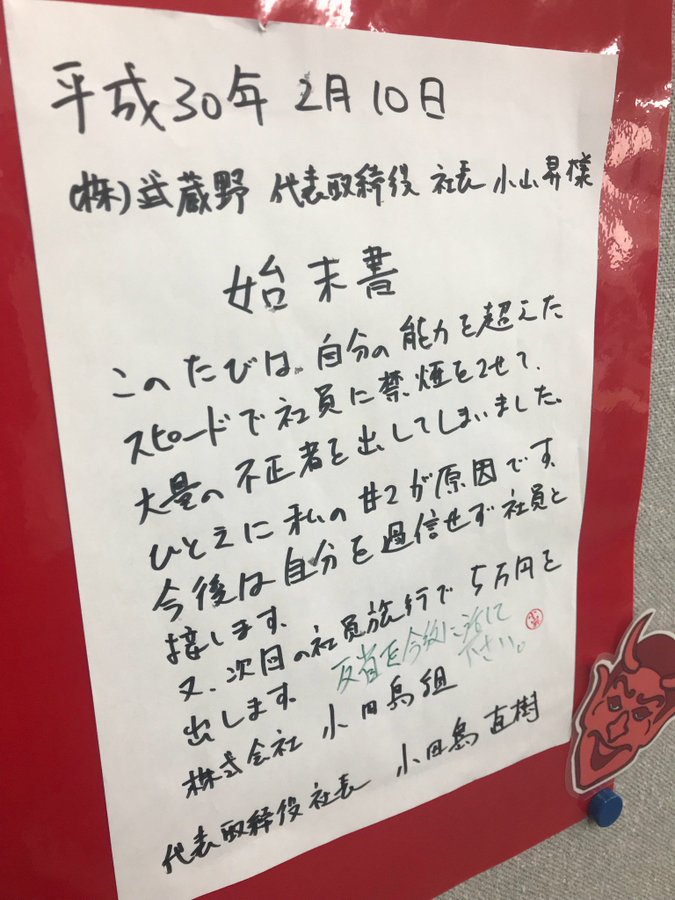 平成30年 2月10日
(株)武蔵野 代表取締役 社長 小山昇様
始末書
このたびは、自分の能力を超えた
スピードで社員に禁煙をさせて、
大量の不正者を出してしまいました。
ひとえに私の甘さが原因です。
今後は自分を過信せず社員と
接します。
又、次回の社員旅行で5万円を
出します。
反省を今後に活して
下さい。
株式会社 小田島組
代表取締役社長 小田島直樹